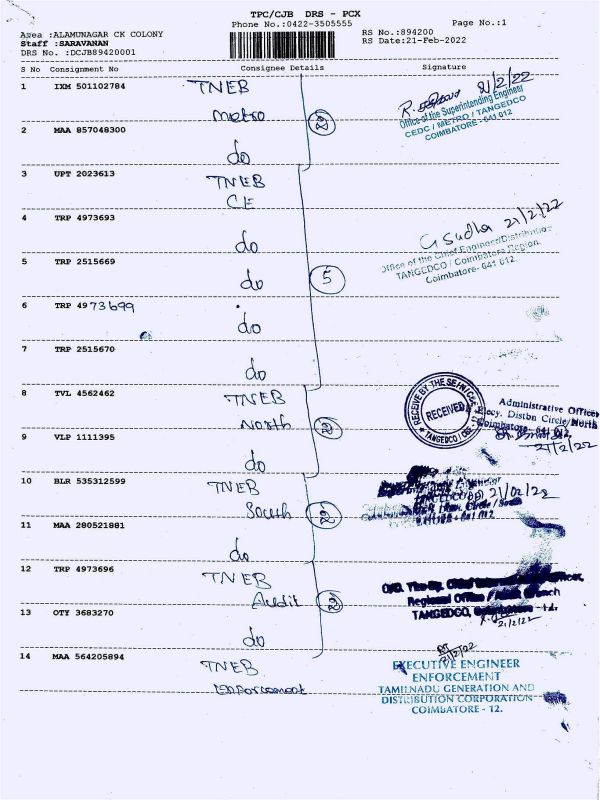 TPC/CJB DRS - PCX
Phone No.:0422-3505555
Page No.:1
Area :ALAMUNAGAR CK COLONY
Staff :SARAVANAN
DRS No. :DCJB89420001
RS No.:894200
RS Date:21-Feb-2022
S No Consignment No Consignee Details Signature
1 IXM 501102784 TNEB
Metro
21/2/22
Office of the Superintending Engineer
CEDC / METRO / TANGEDCO
COIMBATORE - 641 012
2 MAA 857048300
do
3 UPT 2023613 TNEB
CE
4 TRP 4973693
do
G Sudha 21/2/22
Office of the Chief Engineer/Distribution
TANGEDCO / Coimbatore Region
Coimbatore- 641 012
5 TRP 2515669
do
5
6 TRP 4973699
do
7 TRP 2515670
do
8 TVL 4562462 TNEB
North
RECEIVED
Administrative Officer
Elecy. Distbn Circle/North
Coimbatore- 641 012
21/2/22
9 VLP 1111395
do
10 BLR 535312599 TNEB
South
21/02/22
11 MAA 280521881
do
12 TRP 4973696 TNEB
Audit
TANGEDCO,
21/2/22
13 OTY 3683270
do
14 MAA 564205894 TNEB
Enforcement
21/2/22
EXECUTIVE ENGINEER
ENFORCEMENT
TAMILNADU GENERATION AND
DISTRIBUTION CORPORATION
COIMBATORE - 12.